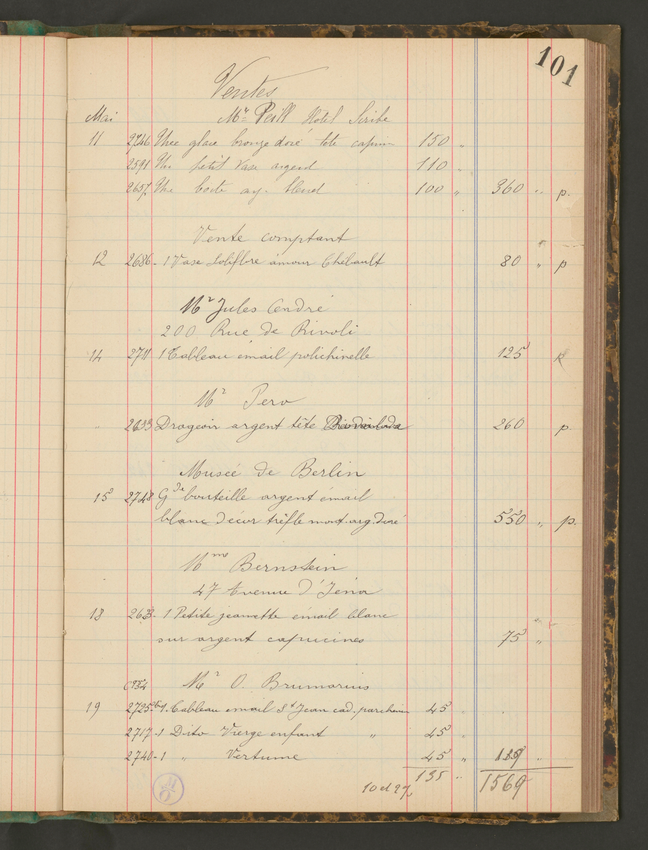 101
Ventes
Mai Mr Peill Hotel Scribe
11 2746 Une glace bronze doré tete capucin 150 "
2591 Un petit Vase argend 110 "
2657 Une boite arg. blend 100 " 360 " p.
Vente comptant
12 2686 - 1 Vase Soliflore amour Thibault 80 " p
Mr Jules André
200 Rue de Rivoli
14 2711 1 Tableau émail polichinelle 125
Mr Pero
" 2633 Drageoir argent tête 260 p.
Musée de Berlin
15 2748 Gde bouteille argent émail
blanc décor trêfle mont. arg. doré 550 " p.
Mme Bernstein
47 Avenue d'Jéna
13 263 - 1 Petite jeanette émail blanc
sur argent capucines 75 "
Mr O. Brumarius
19 2725 1 Tableau email St Jean cad. parchemin 45
2717 - 1 Dito Vierge enfant " 45 "
2740 - 1 " Vertume 45 "
135 " 1569
10 et 27